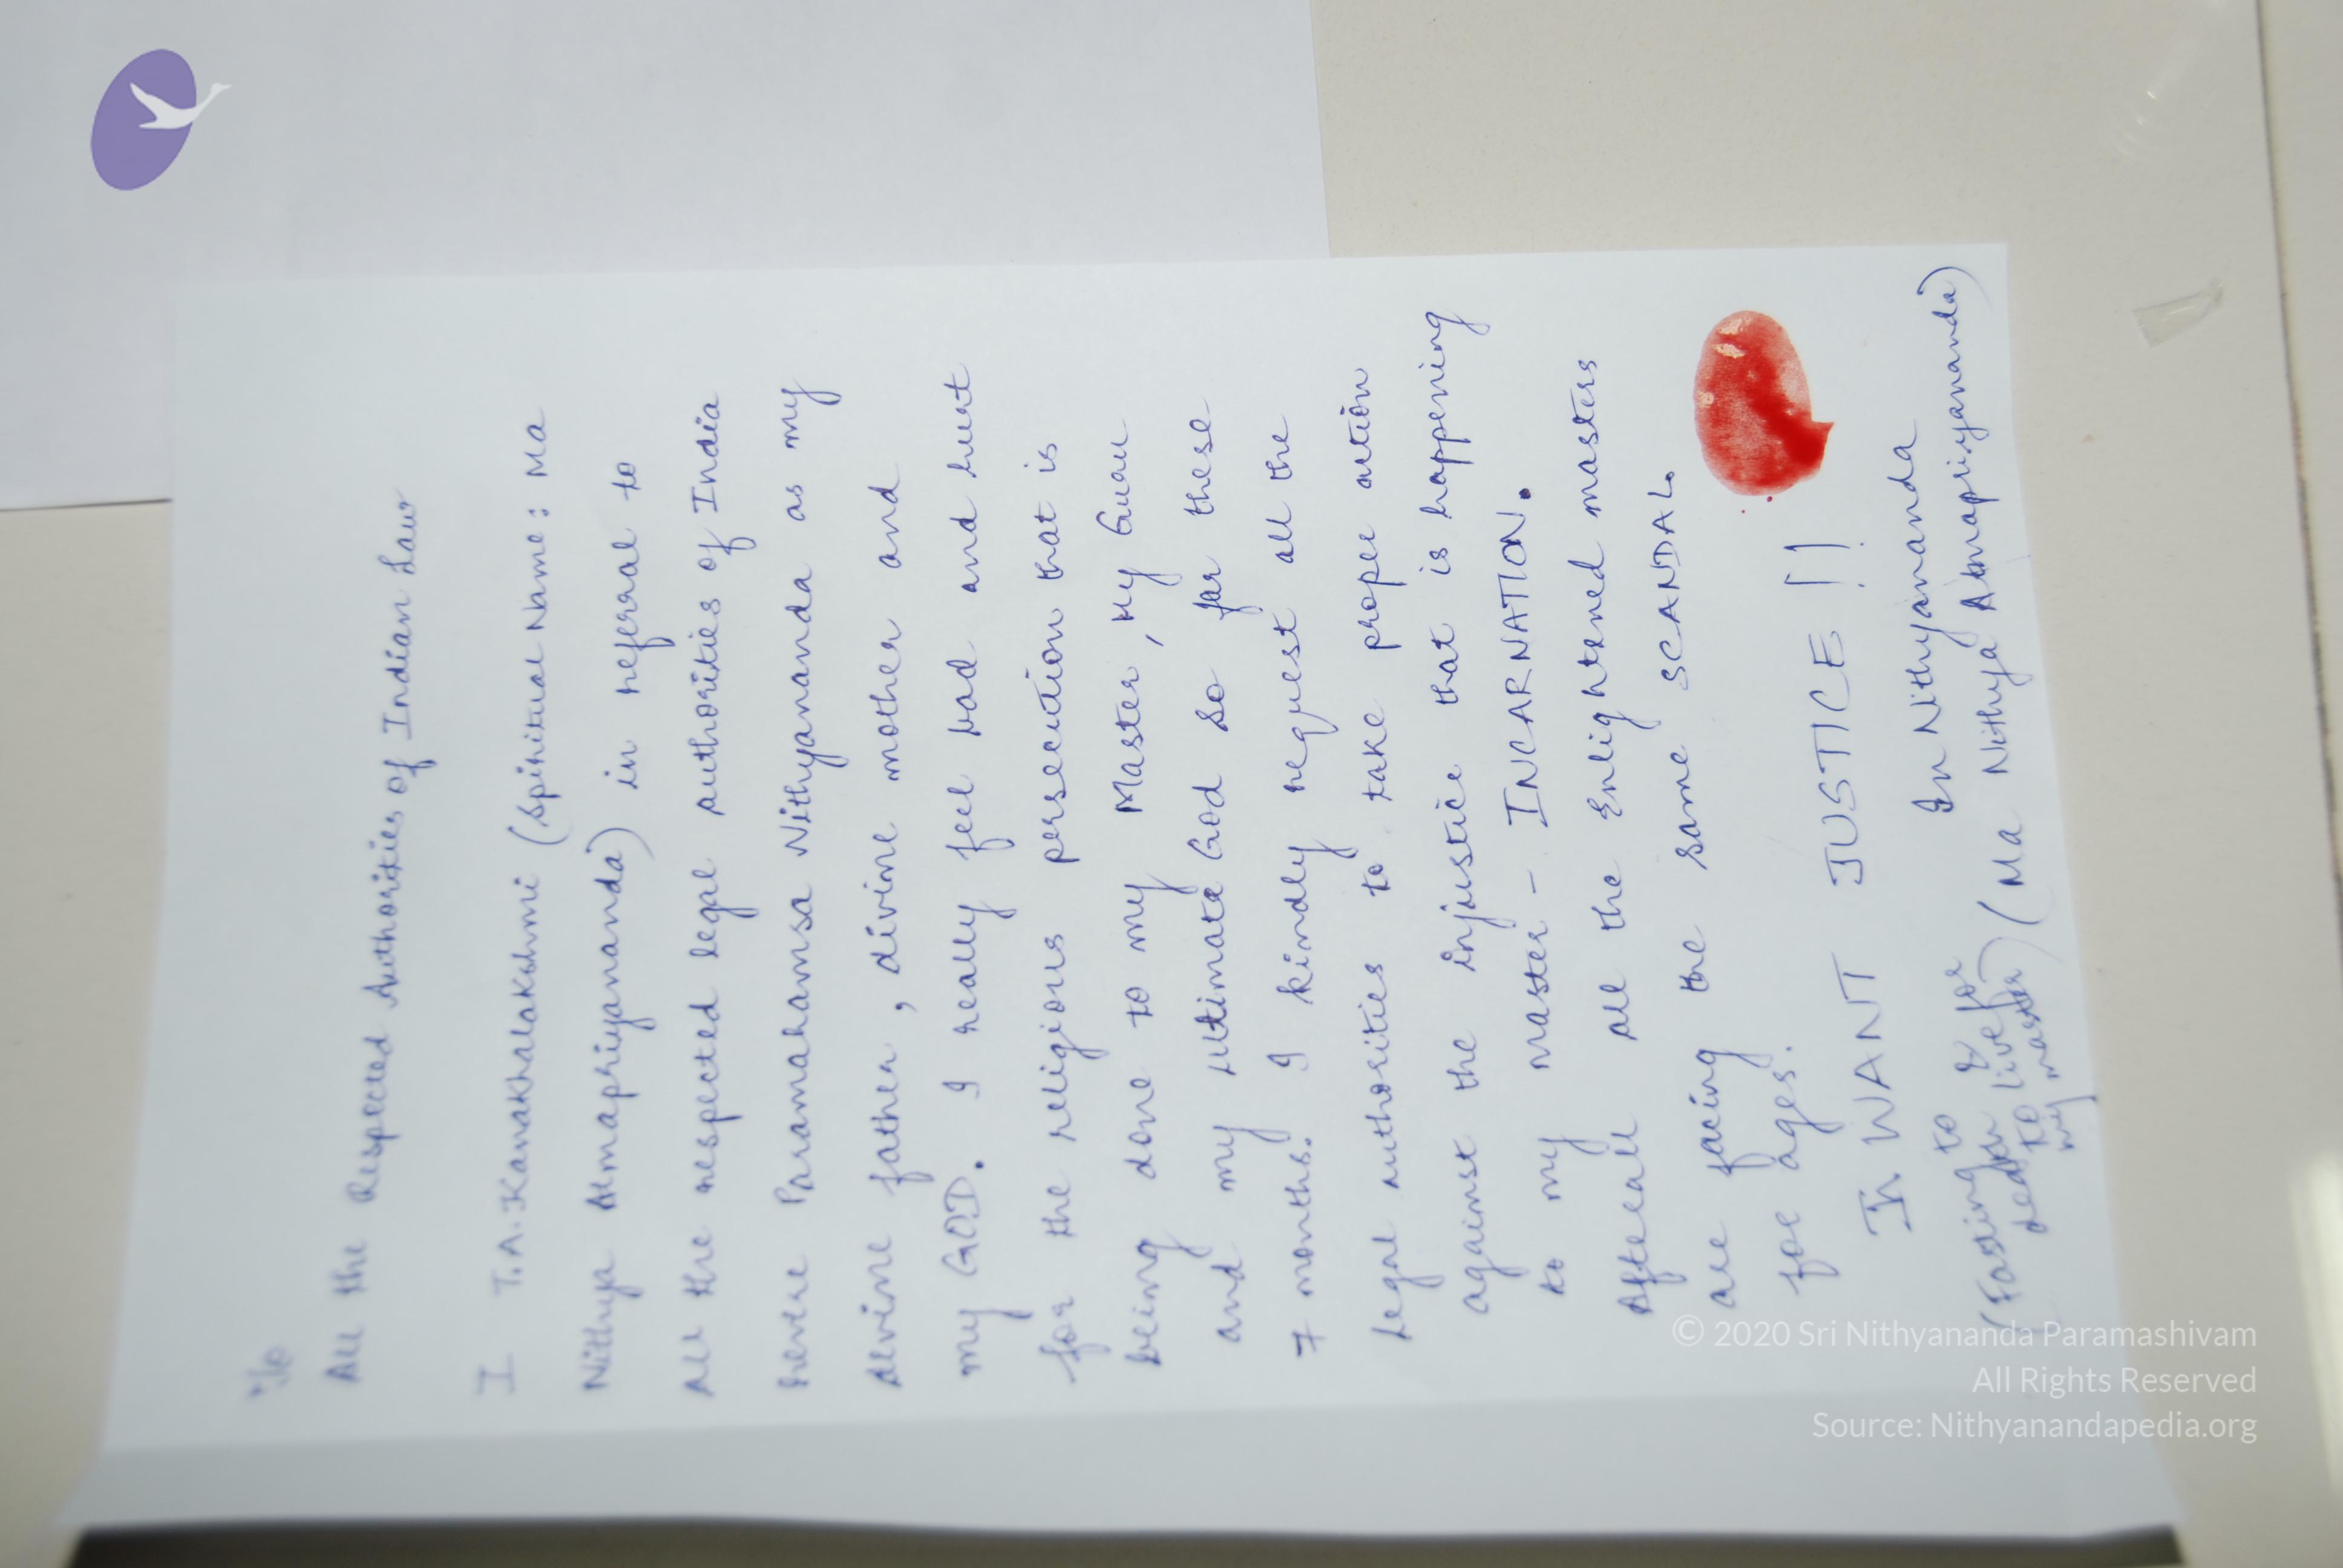 T/o
All the Respected Authorities of Indian Law
I T.A.Kanakhalakshmi (Spiritual Name: Ma
Nithya Atmapriyananda) in referral to
All the respected legal authorities of India
revere Paramahamsa Nithyananda as my
divine father, divine mother and
my GOD. I really feel bad and hurt
for the religious persecution that is
being done to my Master, My Guru
and my ultimate God so far these
7 months. I kindly request all the
legal authorities to take proper action
against the injustice that is happening
to my master - INCARNATION.
Afterall all the Enlightened masters
are facing the same SCANDAL.
for ages.
I WANT JUSTICE !!
In Nithyananda
(Ma Nithya Atmapriyananda)
(Fasting to
death &
to live for
my master)
© 2020 Sri Nithyananda Paramashivam
All Rights Reserved
Source: Nithyanandapedia.org